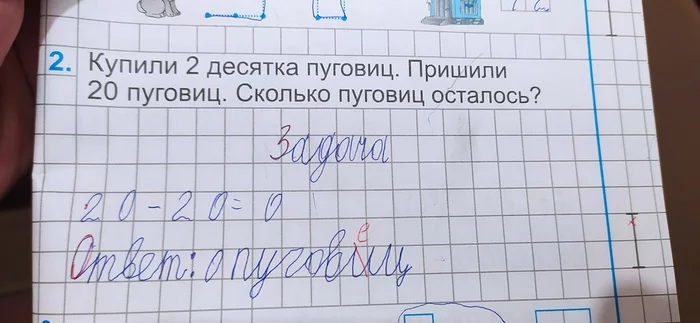 2. Купили 2 десятка пуговиц. Пришили
20 пуговиц. Сколько пуговиц осталось?
Задача
20-20=0
е
Ответ: 0 пуговиц